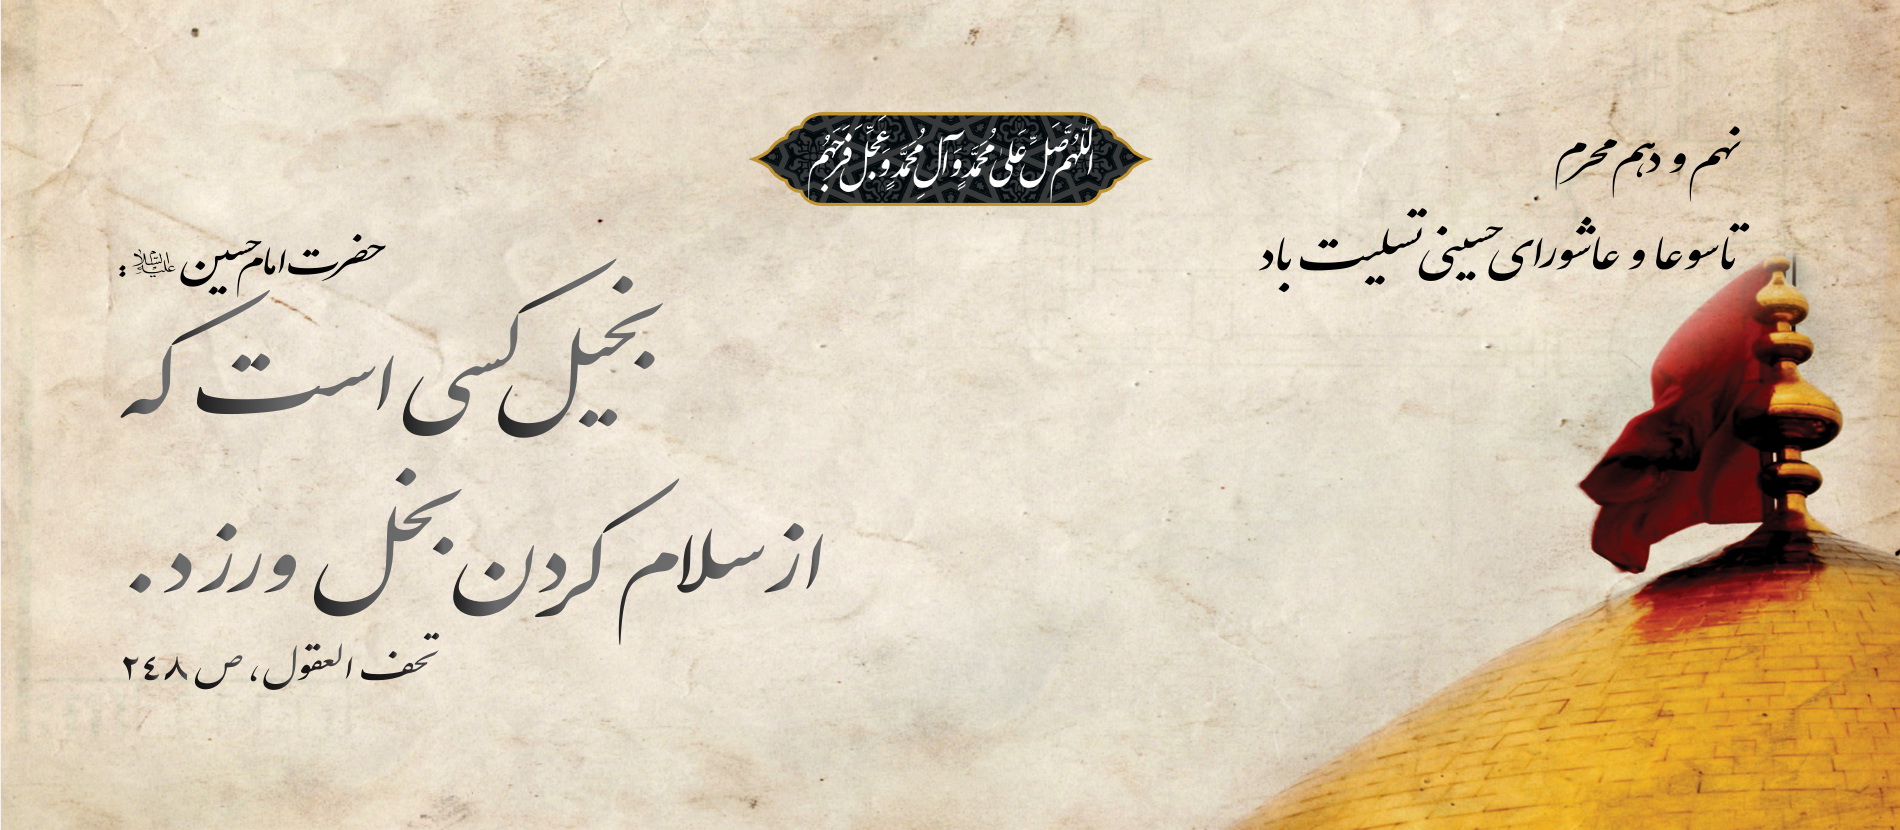 اللّهُمَّ صَلِّ عَلیٰ مُحَمَّدٍ وَآلِ مُحَمَّدٍ وَعَجِّلْ فَرَجَهُم
نهم و دهم محرم
تاسوعا و عاشورای حسینی تسلیت باد
حضرت امام حسین علیه‌السلام :
بخیل کسی است که
از سلام کردن بخل ورزد.
تحف العقول، ص ۲٤۸